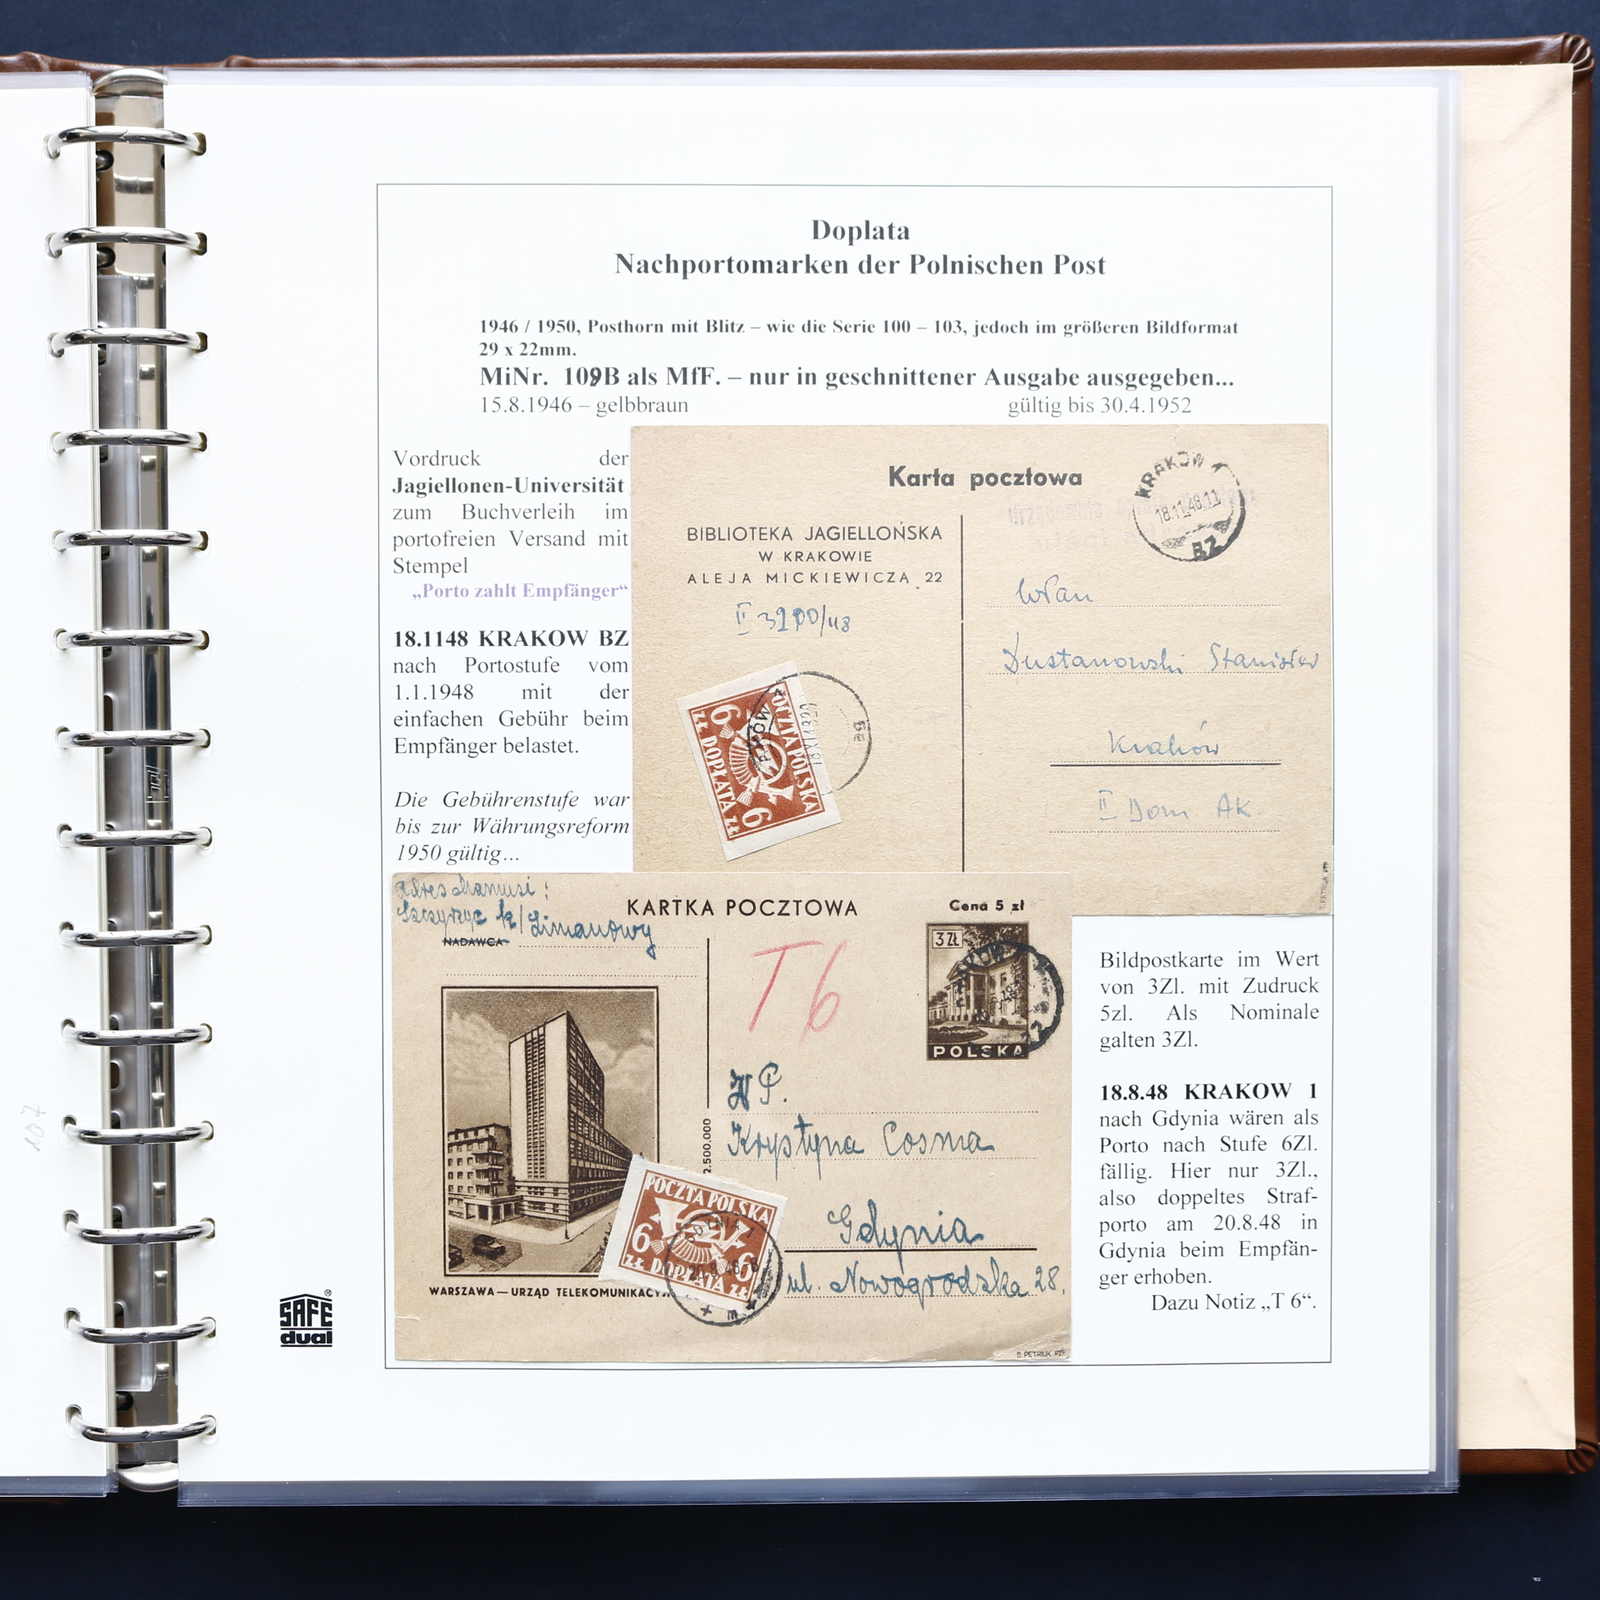 Doplata
Nachportomarken der Polnischen Post
1946 / 1950, Posthorn mit Blitz – wie die Serie 100 – 103, jedoch im größeren Bildformat
29 x 22mm.
MiNr. 109B als MfF. – nur in geschnittener Ausgabe ausgegeben...
15.8.1946 – gelbbraun gültig bis 30.4.1952
Vordruck der
Jagiellonen-Universität
zum Buchverleih im
portofreien Versand mit
Stempel
„Porto zahlt Empfänger“
18.1148 KRAKOW BZ
nach Portostufe vom
1.1.1948 mit der
einfachen Gebühr beim
Empfänger belastet.
Die Gebührenstufe war
bis zur Währungsreform
1950 gültig...
Karta pocztowa
KRAKOW 1
18.11.48.11
BZ
BIBLIOTEKA JAGIELLOŃSKA
W KRAKOWIE
ALEJA MICKIEWICZA 22
II
WPan
Dustanowski Stanisław
Kraków
II Dom AK.
POCZTA POLSKA
6 6
ZŁ DOPŁATA ZŁ
Adres Mamusi:
Szczyrzyc k/Limanowy
KARTKA POCZTOWA
Cena 5 zł
NADAWCA
3 ZŁ
POLSKA
T 6
WP.
Krystyna Cosma
Gdynia
ul. Nowogrodzka 28.
2.500.000
POCZTA POLSKA
6 6
ZŁ DOPŁATA ZŁ
GDYNIA 1
20.8.48
WARSZAWA — URZĄD TELEKOMUNIKACYJ
Bildpostkarte im Wert
von 3Zl. mit Zudruck
5zl. Als Nominale
galten 3Zl.
18.8.48 KRAKOW 1
nach Gdynia wären als
Porto nach Stufe 6Zl.
fällig. Hier nur 3Zl.,
also doppeltes Straf-
porto am 20.8.48 in
Gdynia beim Empfän-
ger erhoben.
Dazu Notiz „T 6“.
SAFE®
dual
107